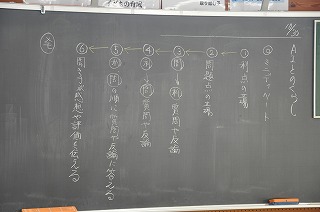 AIとのくらし
◎ミニディベート
①利点の立場
②問題点の立場
③問→利 質問や反論
④利→問 質問や反論
⑤利問の順に質問や反論に答える
⑥聞き手が感想や評価を伝える